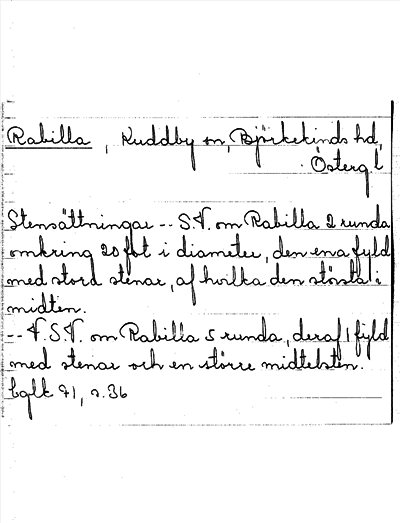 Rabilla, Kuddby sn, Björkekinds hd,
Österg. l
Stensättningar -- S.V. om Rabilla 2 runda
omkring 20 fot i diameter, den ena fyld
med stora stenar, af hvilka den största i
midten.
-- V.S.V. om Rabilla 5 runda, deraf 1 fyld
med stenar och en större midtelsten.
71, s. 36